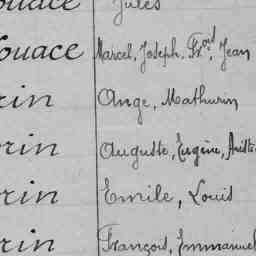 Jules
ouace Marcel, Joseph, Frs, Jean
rin Ange, Mathurin
rin Auguste, Eugène, Aristi
rin Emile, Louis
rin François, Emmanuel